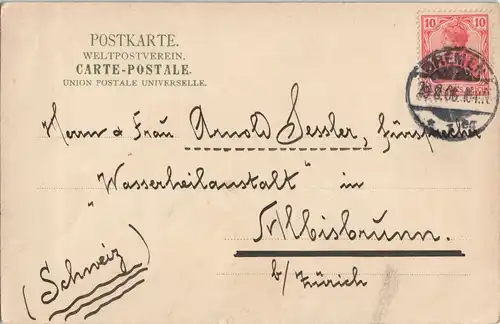 POSTKARTE.
WELTPOSTVEREIN.
CARTE-POSTALE.
UNION POSTALE UNIVERSELLE.
10 10
BREMEN
Herrn & Frau Arnold Sessler, Fürsprecher
"Wasserheilanstalt" im
Albisbrunn.
b/ Zürich
(Schweiz)